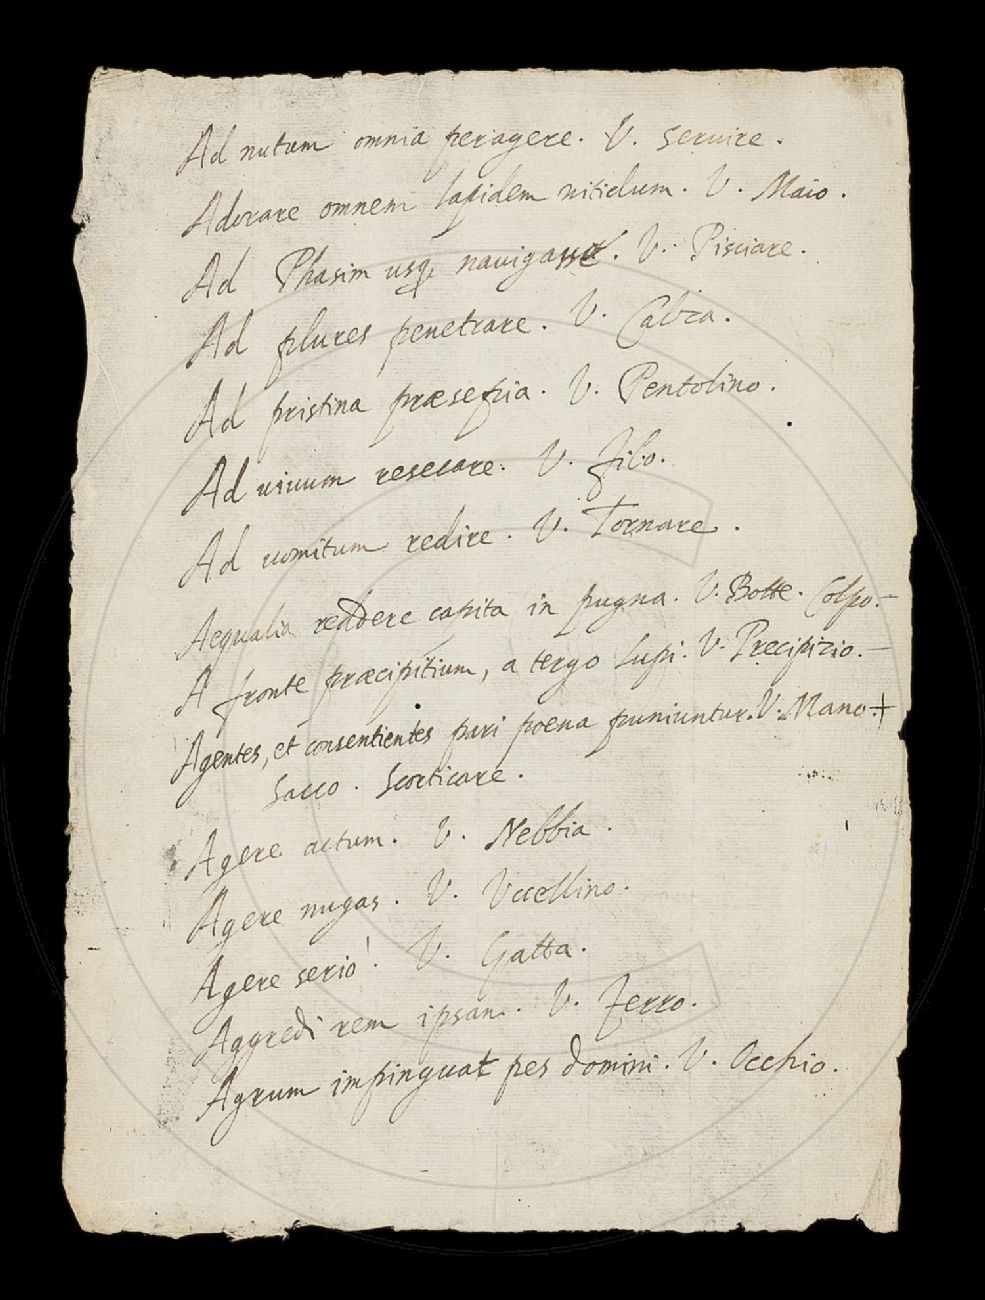 Ad nutum omnia peragere. V. Seruire.
Adorare omnem lapidem nitidum. V. Maio.
Ad Phasim usq navigasse. V. Pisciare.
Ad plures penetrare. V. Calza.
Ad pristina præsepia. V. Pentolino.
Ad uiuum resecare. V. Filo.
Ad uomitum redire. V. Tornare.
Aequalia reddere capita in pugna. V. Botte. Colpo.–
A fronte præcipitium, a tergo lupi. V. Precipizio.–
Agentes, et consentientes pari poena puniuntur. V. Mano.+
Sacco. Scorticare.
Agere actum. V. Nebbia.
Agere nugas. V. Vccellino.
Agere serio. V. Gatta.
Aggredi rem ipsam. V. Ferro.
Agrum impinguat pes domini. V. Occhio.